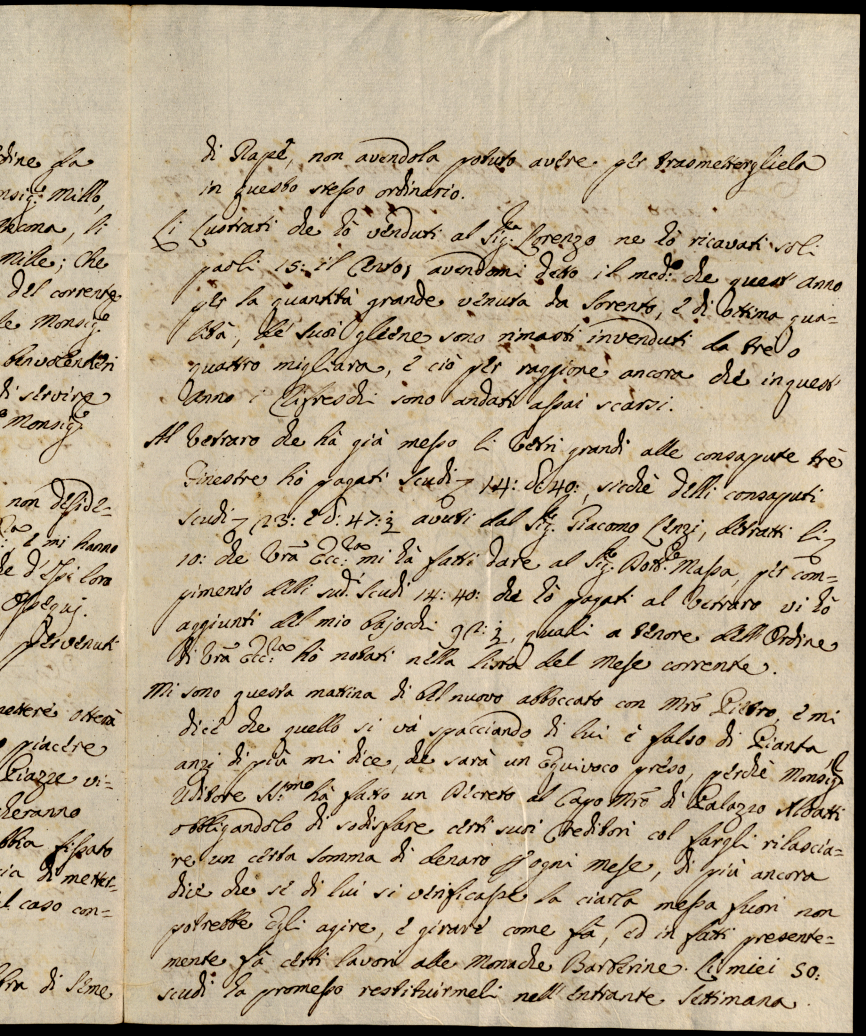 dine fa
nsig.r Millo,
Ancona, li
mille; che
del corrente
le Monsig.r
benvolentieri
di servire
Monsig.r
non deside-
è mi hanno
de d'Essi loro
Ossequj.
pervenuti
mettere otterà
piacere
Piazze vi-
cheranno
bbia fissato
cia di metter-
l caso con-
tra di seme
di Rapè, non avendola potuto avere per trasmettergliela
in questo stesso ordinario.
Li Lustrati che hò venduti al Sig.r Lorenzo ne hò ricavati soli
paoli 15: il Cento, avendomi detto il med.o che quest'anno
per la quantità grande venuta da Sorento, e di ottima qua-
lità, de' suoi gliene sono rimasti invenduti da trè o
quattro migliara, e ciò per raggione ancora che in quest'
anno i Rifreschi sono andati assai scarsi.
Al Vetraro che hà già messo li Vetri grandi alle consapute trè
Finestre hò pagati Scudi 14: 40:, sicchè delli consaputi
scudi 23: e b: 47:½ avuti dal Sig.r Giacomo Cenzi, detratti li
10: che Vrã Ecc:za mi hà fatti dare al Sig.r Dott.re Massa, per com-
pimento delli sud.i Scudi 14: 40: che hò pagati al Vetraro vi hò
aggiunti del mio bajocchi 92:½, quali a tenore dell'Ordine
di Vrã Ecc:za hò notati nella lista del Mese corrente.
Mi sono questa mattina di bel nuovo abboccato con Mrõ Pietro, è mi
dice che quello si và spacciando di lui è falso di Pianta
anzi di più mi dice, che sarà un Equivoco preso, perchè Monsig.r
Uditore SS.mo hà fatto un Decreto al Capo Mrõ di Palazzo Abbatti
obbligandolo di sodisfare certi suoi Creditori col fargli rilascia-
re un certa somma di denaro p ogni mese, di più ancora
dice che se di lui si verificasse la ciarla messa fuori non
potrebbe Egli agire, e girare come fà, ed in fatti presente-
mente fà certi lavori alle Monache Barberine. Li miei 50:
scudi hà promesso restituirmeli nell'entrante settimana.